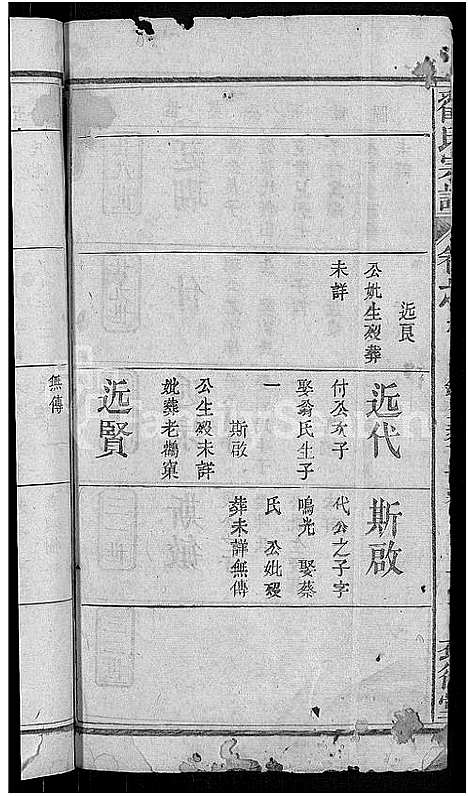 氏宗譜
近良
公妣生殁葬
未詳
近代
付公次子
娶翁氏生子
一
斯啟
公生殁未詳
妣葬老鸛窠
近賢
斯啟
代公之子字
鳴光 娶蔡
氏 公妣殁
葬未詳無傳
無傳